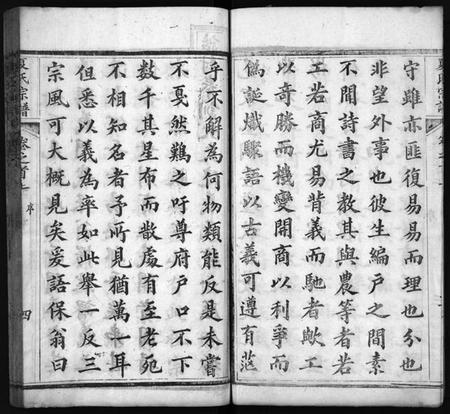 夏氏宗譜
守雖亦匪復易易而理也分也
非望外事也彼生編戶之間素
不聞詩書之教其與農等者若
工若商尤易背義而馳者歟工
以奇勝而機變開商以利爭而
偽誕熾驟語以古義可遵有茫
乎不解為何物類能反是未嘗
不戛然難之吁尊府戶口不下
數千其星布而散處有至老死
不相知名者予所見猶萬一耳
但悉以義為率如此舉一反三
宗風可大概見矣爰語保翁曰
夏氏宗譜
卷之首
序
四